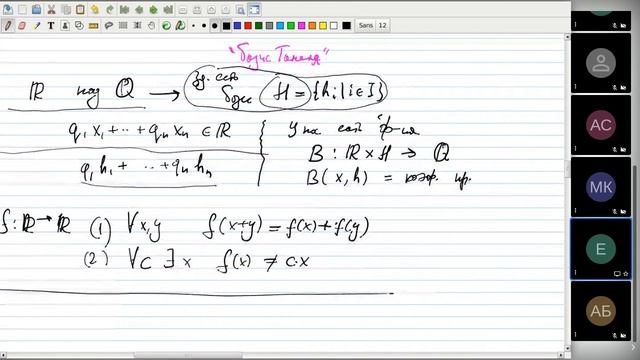 Sans 12
"базис Гамеля"
ℝ над ℚ → здесь есть базис H = {hᵢ | i ∈ I}
q₁x₁ + ⋯ + qₙxₙ ∈ ℝ
q₁h₁ + ⋯ + qₙhₙ
У нас есть ф-ция
B : ℝ × H → ℚ
B(x, h) = коэф. пр.
f : ℝ → ℝ (1) ∀x,y f(x+y) = f(x) + f(y)
(2) ∀c ∃x f(x) ≠ c·x
АС
МК
Е
АБ